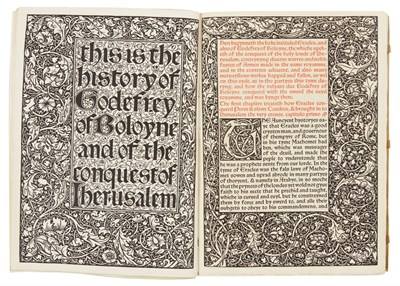 this is the
history of
Godefrey
of Boloyne
and of the
conquest of
Iherusalem
Here begynneth the boke intituled Eracles, and
also of Godefrey of Boloyne, the whiche spek-
eth of the conquest of the holy londe of Ihe-
rusalem, conteynyng diverse warres and noble
faytes of Armes made in the same royamme
and in the contrees adiacent, and also many
mervayllous werkes happed and fallen, as wel
on this syde, as in tho partyes this tyme du-
ryng, and how the valyant duc Godefrey of
Boloyne conquered with the swerd the sayd
royamme, and was kynge there.
The first chapitre treateth how Eracles con-
quered Perse & slewe Cosdroe, & brought in to
Iherusalem the very crosse, capitulo primo
The Auncyent hystoryes say-
ne that Eracles was a good
crysten man, and governour
of thempyre of Rome, but
in his tyme Machomet had
ben, which was messager
of the devil, and made the
peple to understonde that
he was a prophete sente from our lorde. In the
tyme of Eracles was the fals lawe of Macho-
met sowen and sprad abrode in many partyes
of thoryent, & namely in Arabye, in so moche
that the prynces of the londes yet wold not gyve
faith to his secte that he prechid and taught,
which is cursed and evyl, but he constrayned
them by force and by swerd to, and alle their
subgets to obeye to his commandemens, and